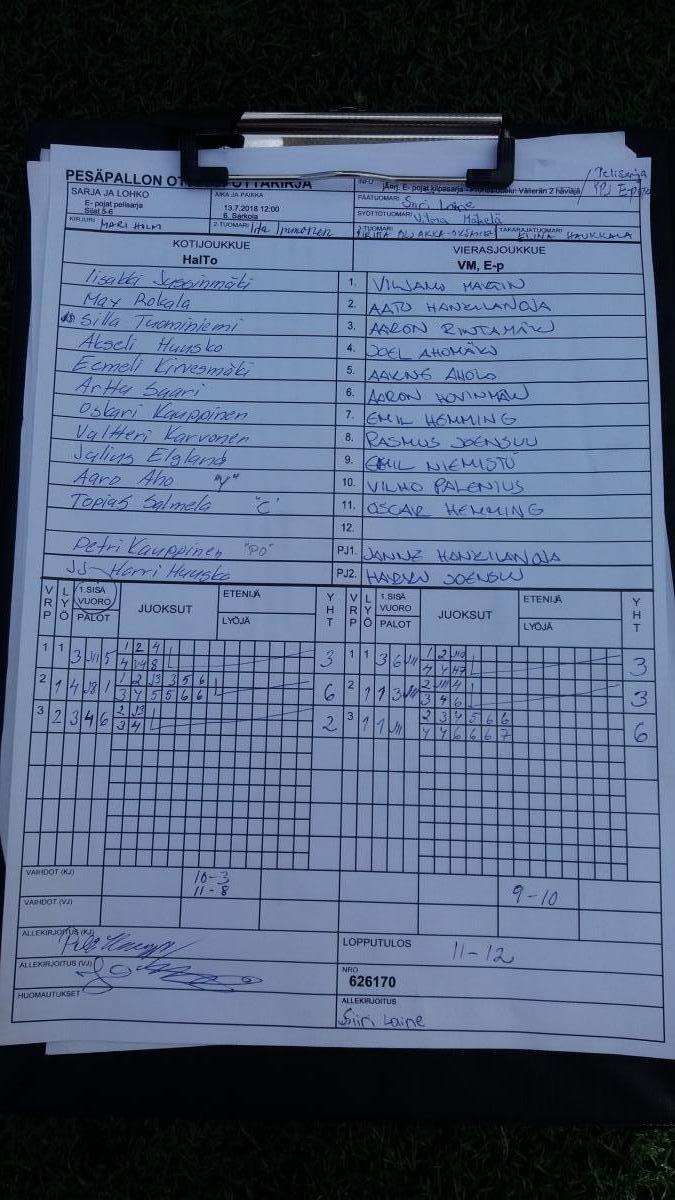 PESÄPALLON
SARJA JA LOHKO
E- pojat pelisarja
Sijat 5-6
AIKA JA PAIKKA
13.7.2018 12:00
6. Sarkola
INFO
Pelisarja
PÄÄTUOMARI Siiri Laine
SYÖTTÖTUOMARI Vilma Mäkelä
KIRJURI MARI HOLM
2-TUOMARI Iita Immonen
TAKARAJATUOMARI ELINA HAUKKALA
KOTIJOUKKUE
HalTo
VIERASJOUKKUE
VM, E-p
Iisakki Jussinmäki 1. VILJAMI MARTIN
Max Rokala 2. AATU HANKILANOJA
Silla Tuominiemi 3. AARON RINTAMÄKI
Akseli Huusko 4. JOEL AHOMÄKI
Eemeli Kirvesmäki 5. AHOLO
Arttu Saari 6. AARON
Oskari Kauppinen 7. EMIL HEMMING
Valtteri Karvonen 8. RASMUS JOENSUU
Julius Elgland 9. EMIL NIEMISTÖ
Aaro Aho "V" 10. VILHO PALENIUS
Topias Salmela "C" 11. OSCAR HEMMING
12.
Petri Kauppinen "PO" PJ1. JANNE HANKILANOJA
Harri Huusko PJ2. JOENSUU
VRP LYÖ 1.SISÄ VUORO PALOT JUOKSUT ETENIJÄ LYÖJÄ YHT VRP LYÖ 1.SISÄ VUORO PALOT JUOKSUT ETENIJÄ LYÖJÄ YHT
1 1 3 5 1 2 4 3 1 1 3 6 1 2 3
4 8
2 1 4 1 1 2 3 5 6 6 2 1 1 3 2 4 3
3 4 5 5 6 6 3 4 6
3 2 3 4 6 2 2 3 1 1 2 3 4 5 6 6 6
3 4 4 4 6 6 6 7
VAIHDOT (KJ) 10-3
11-8
9-10
VAIHDOT (VJ)
ALLEKIRJOITUS (KJ)
LOPPUTULOS 11-12
ALLEKIRJOITUS (VJ)
NRO
626170
HUOMAUTUKSET
ALLEKIRJOITUS
Siiri Laine